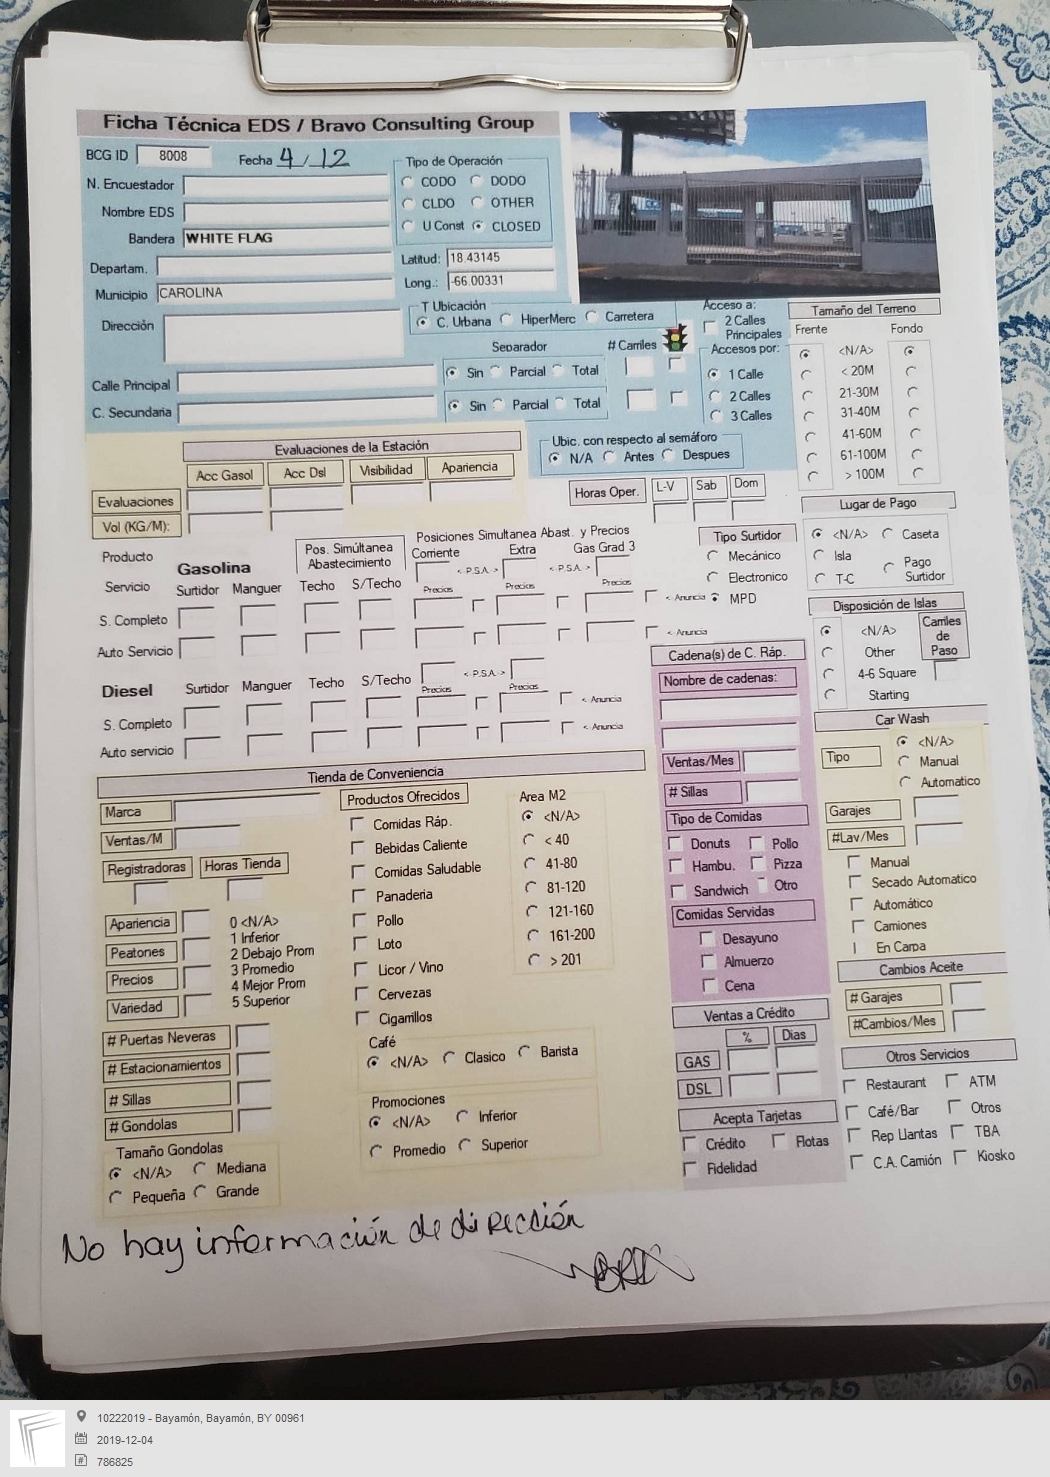 Ficha Técnica EDS / Bravo Consulting Group
BCG ID 8008 Fecha 4/12
N. Encuestador
Nombre EDS
Bandera WHITE FLAG
Departam.
Municipio CAROLINA
Dirección
Calle Principal
C. Secundaria
Tipo de Operación
CODO DODO
CLDO OTHER
U Const CLOSED
Latitud: 18.43145
Long.: -66.00331
T Ubicación
C. Urbana HiperMerc Carretera
Separador # Carriles
Sin Parcial Total
Sin Parcial Total
Acceso a:
2 Calles
Principales
Accesos por:
1 Calle
2 Calles
3 Calles
Ubic. con respecto al semáforo
N/A Antes Despues
Tamaño del Terreno
Frente Fondo
<N/A>
< 20M
21-30M
31-40M
41-60M
61-100M
> 100M
Evaluaciones de la Estación
Acc Gasol Acc Dsl Visibilidad Apariencia
Evaluaciones
Vol (KG/M):
Horas Oper. L-V Sab Dom
Lugar de Pago
<N/A> Caseta
Isla Pago
T-C Surtidor
Producto
Servicio
Gasolina
Surtidor Manguer
Pos. Simúltanea
Abastecimiento
Techo S/Techo
Posiciones Simultanea Abast. y Precios
Corriente Extra Gas Grad 3
< P.S.A. > < P.S.A. >
Precios Precios Precios
S. Completo < Anuncia
Auto Servicio < Anuncia
Tipo Surtidor
Mecánico
Electronico
MPD
Disposición de Islas
<N/A>
Other
4-6 Square
Starting
Carriles
de
Paso
Diesel Surtidor Manguer Techo S/Techo
< P.S.A. >
Precios Precios
S. Completo < Anuncia
Auto servicio < Anuncia
Cadena(s) de C. Ráp.
Nombre de cadenas:
Ventas/Mes
# Sillas
Tipo de Comidas
Donuts Pollo
Hambu. Pizza
Sandwich Otro
Comidas Servidas
Desayuno
Almuerzo
Cena
Car Wash
Tipo
<N/A>
Manual
Automatico
Garajes
#Lav/Mes
Manual
Secado Automatico
Automático
Camiones
En Carpa
Cambios Aceite
# Garajes
#Cambios/Mes
Tienda de Conveniencia
Marca
Ventas/M
Registradoras Horas Tienda
Apariencia
Peatones
Precios
Variedad
0 <N/A>
1 Inferior
2 Debajo Prom
3 Promedio
4 Mejor Prom
5 Superior
# Puertas Neveras
# Estacionamientos
# Sillas
# Gondolas
Tamaño Gondolas
<N/A> Mediana
Pequeña Grande
Productos Ofrecidos
Comidas Ráp.
Bebidas Caliente
Comidas Saludable
Panaderia
Pollo
Loto
Licor / Vino
Cervezas
Cigarrillos
Area M2
<N/A>
< 40
41-80
81-120
121-160
161-200
> 201
Café
<N/A> Clasico Barista
Promociones
<N/A> Inferior
Promedio Superior
Ventas a Crédito
% Dias
GAS
DSL
Acepta Tarjetas
Crédito Flotas
Fidelidad
Otros Servicios
Restaurant ATM
Café/Bar Otros
Rep Llantas TBA
C.A. Camión Kiosko
No hay información de dirección
10222019 - Bayamón, Bayamón, BY 00961
2019-12-04
786825